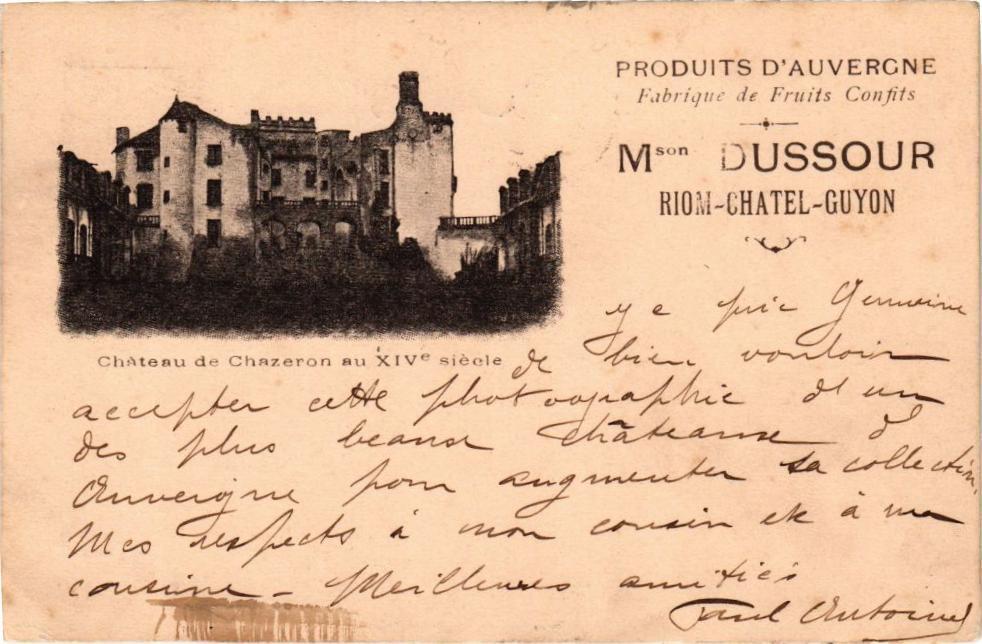 PRODUITS D'AUVERGNE
Fabrique de Fruits Confits
Mson DUSSOUR
RIOM-CHATEL-GUYON
Château de Chazeron au XIVe siècle
y e prie Germaine
de bien vouloir
accepter cette photographie d'un
des plus beaux châteaux d'
Auvergne pour augmenter sa collection.
Mes respects à mon cousin et à ma
cousine - Meilleures amitiés
Paul Antoine